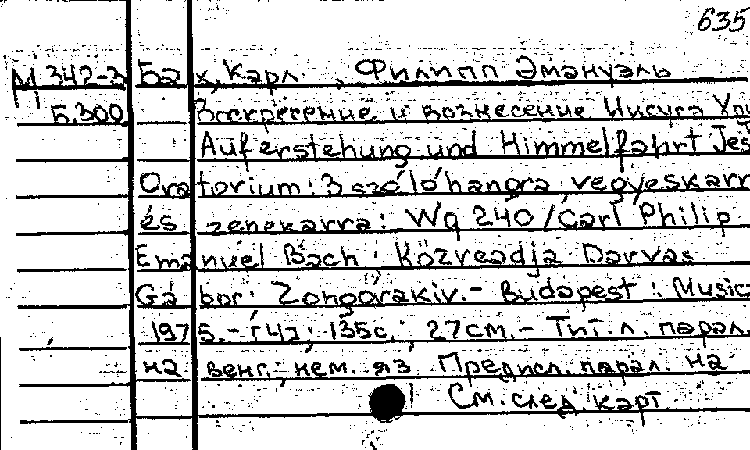 635
М 342-3 Бах, Карл, Филипп Эмануэль
Б.300 Воскресение и вознесение Иисуса Хри
Auferstehung und Himmelfahrt Jes
Oratorium: 3 szólóhangra, vegyeskarr
és zenekarra: Wq 240 / Carl Philip
Emanuel Bach; Közreadja Darvas
Gábor; Zongorakiv. - Budapest: Music
1975. - [4]; 135с.; 27см. - Тит. л. парал.
на венг.; нем. яз. Предисл. парал. на
См. след. карт.